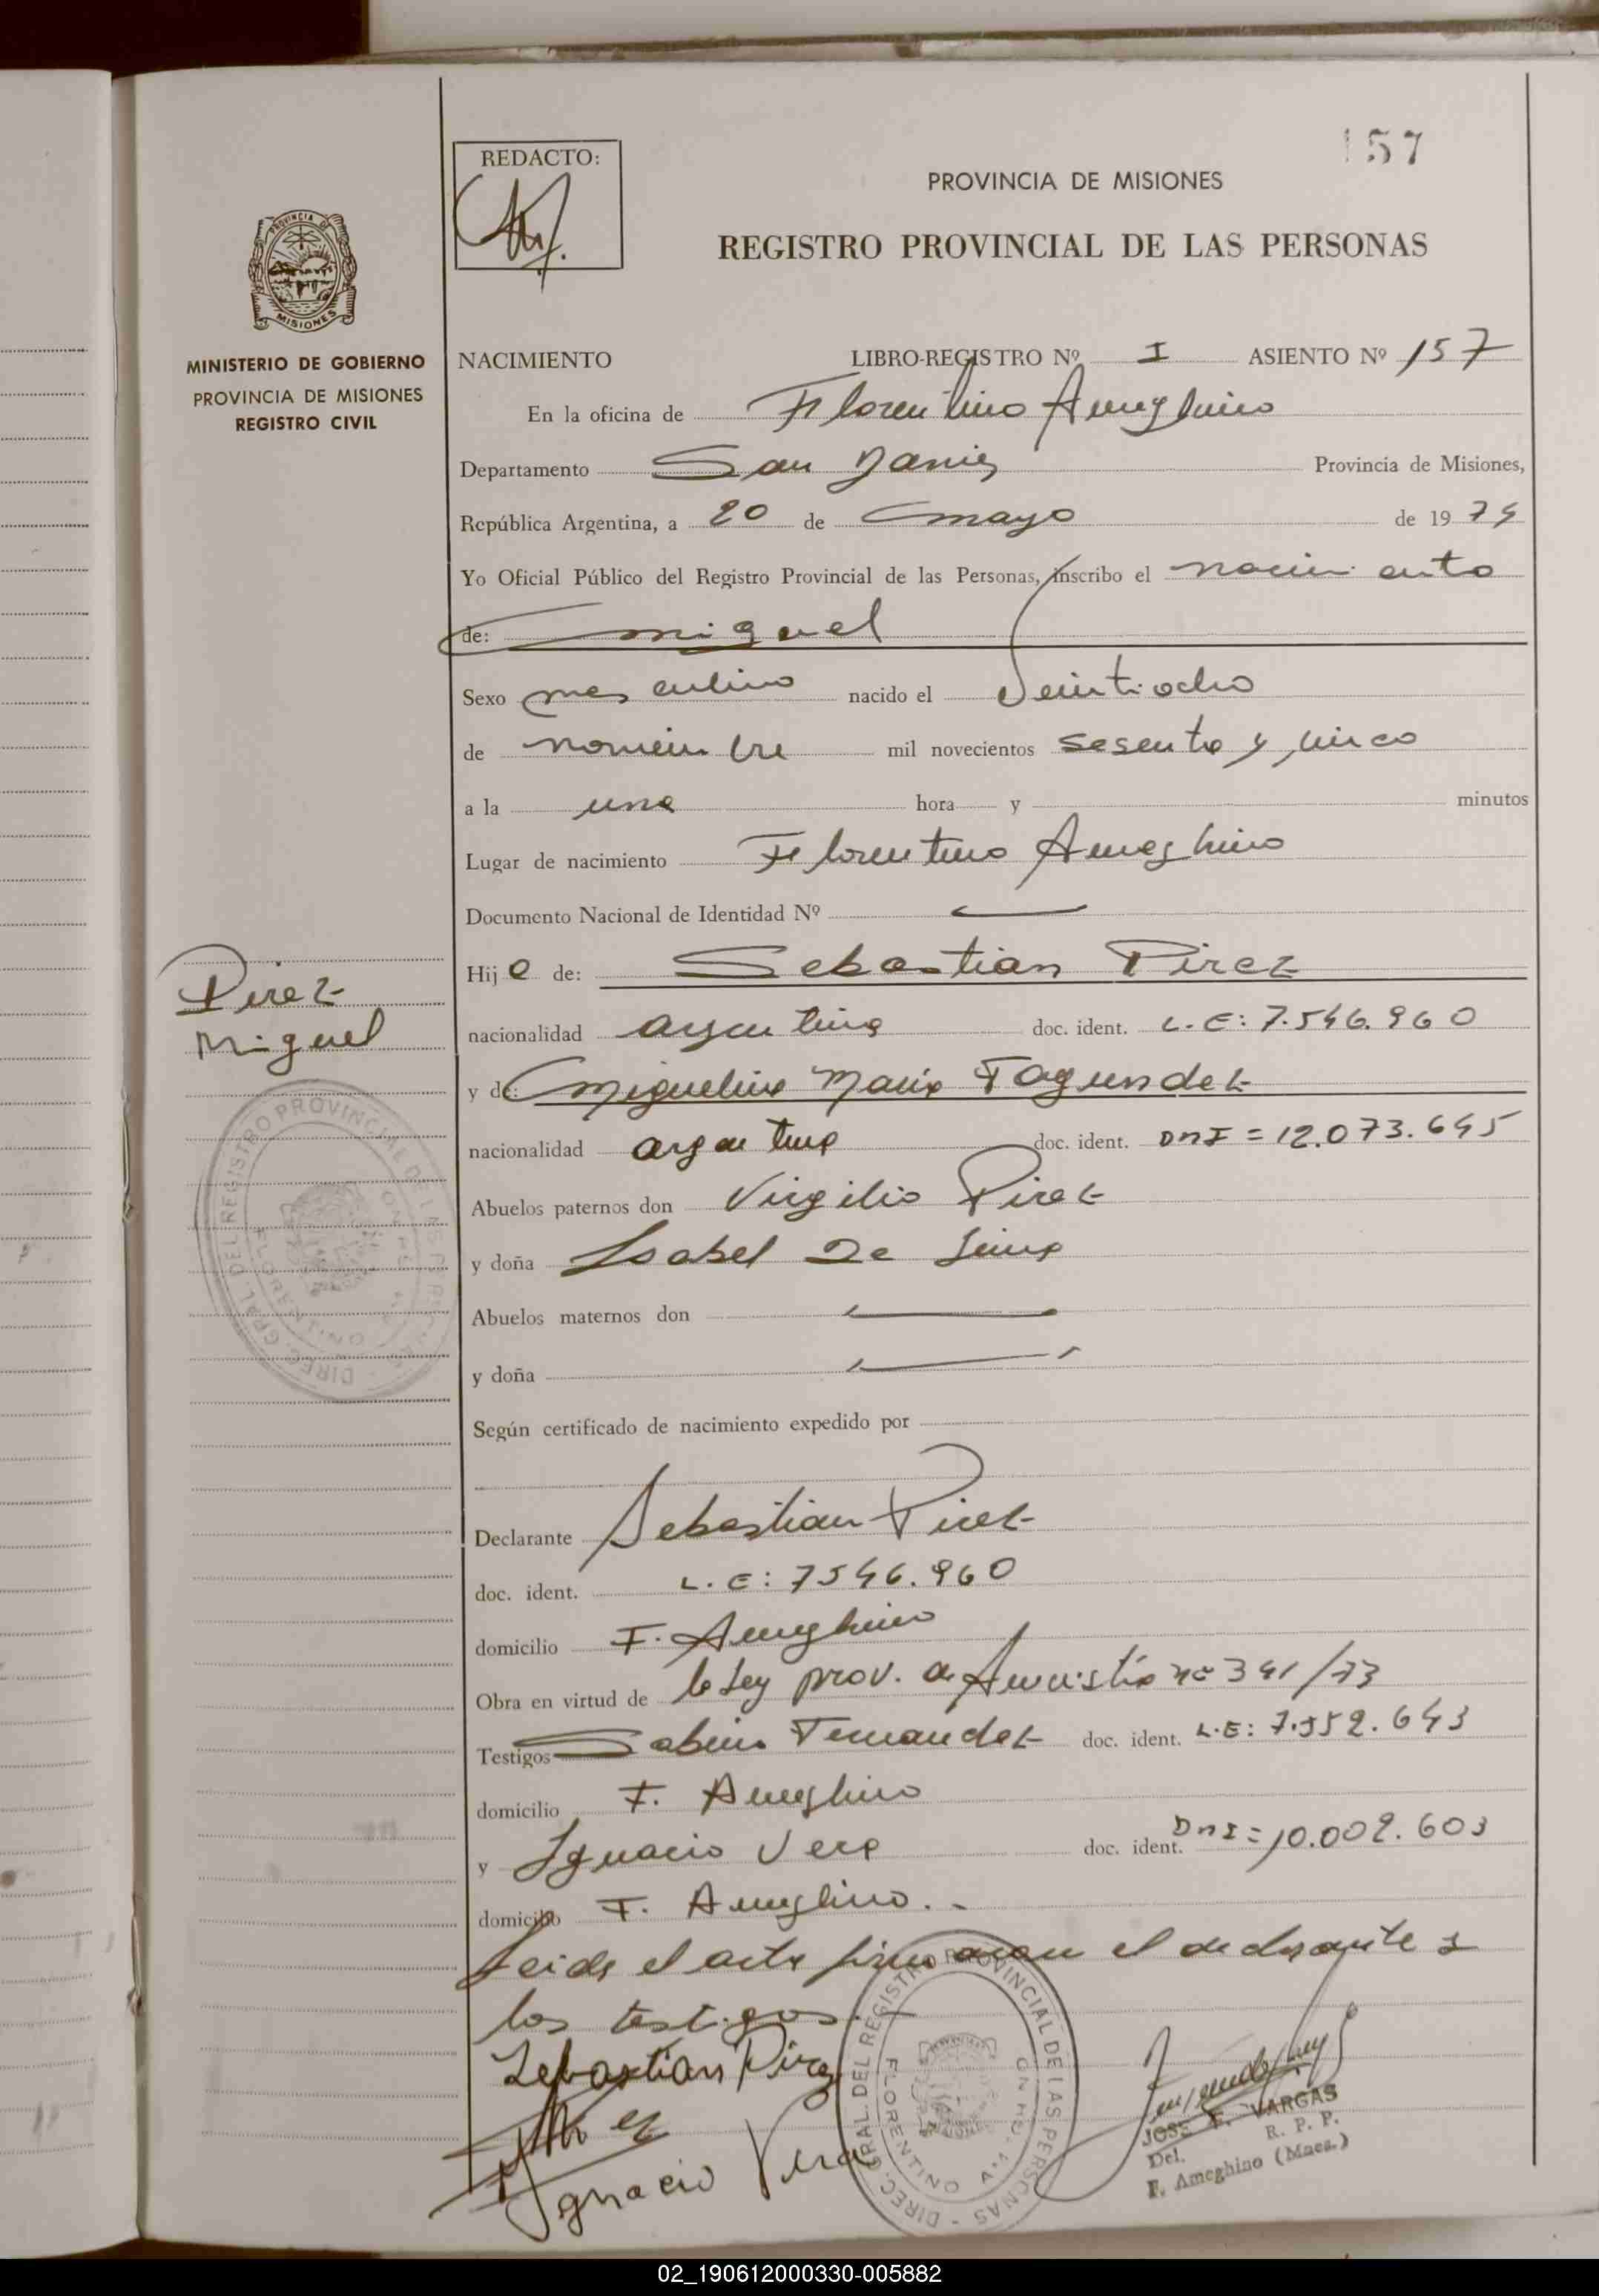 157
REDACTO:
PROVINCIA DE MISIONES
REGISTRO PROVINCIAL DE LAS PERSONAS
PROVINCIA DE
MISIONES
MINISTERIO DE GOBIERNO
PROVINCIA DE MISIONES
REGISTRO CIVIL
NACIMIENTO LIBRO-REGISTRO Nº I ASIENTO Nº 157
En la oficina de Florentino Ameghino
Departamento San Javier Provincia de Misiones,
República Argentina, a 20 de mayo de 1974
Yo Oficial Público del Registro Provincial de las Personas, inscribo el nacimiento
de: Miguel
Sexo masculino nacido el Veintiocho
de noviembre mil novecientos sesenta y cinco
a la una hora y minutos
Lugar de nacimiento Florentino Ameghino
Documento Nacional de Identidad Nº
Hijo de: Sebastian Pirez
Pirez
Miguel
nacionalidad argentina doc. ident. L.E: 7.546.960
y de: Miguelina Maria Fagundez
nacionalidad argentina doc. ident. DNI = 12.073.645
Abuelos paternos don Virgilio Pirez
y doña Isabel De Lima
Abuelos maternos don
y doña
Según certificado de nacimiento expedido por
Declarante Sebastian Pirez
doc. ident. L.E: 7546.960
domicilio F. Ameghino
Obra en virtud de la Ley prov. de Amnistía nº 341/73
Testigos Sabino Fernandez doc. ident. L.E: 7.552.643
domicilio F. Ameghino
y Ignacio Vera doc. ident. DNI = 10.002.603
domicilio F. Ameghino.-
Leida el acta firmaron el declarante y
los testigos.
Sebastian Pirez
Ignacio Vera
DIREC. GRAL. DEL REGISTRO PROVINCIAL DE LAS PERSONAS
FLORENTINO
JOSE F. VARGAS
Del. R. P. P.
F. Ameghino (Mnes.)
02_190612000330-005882